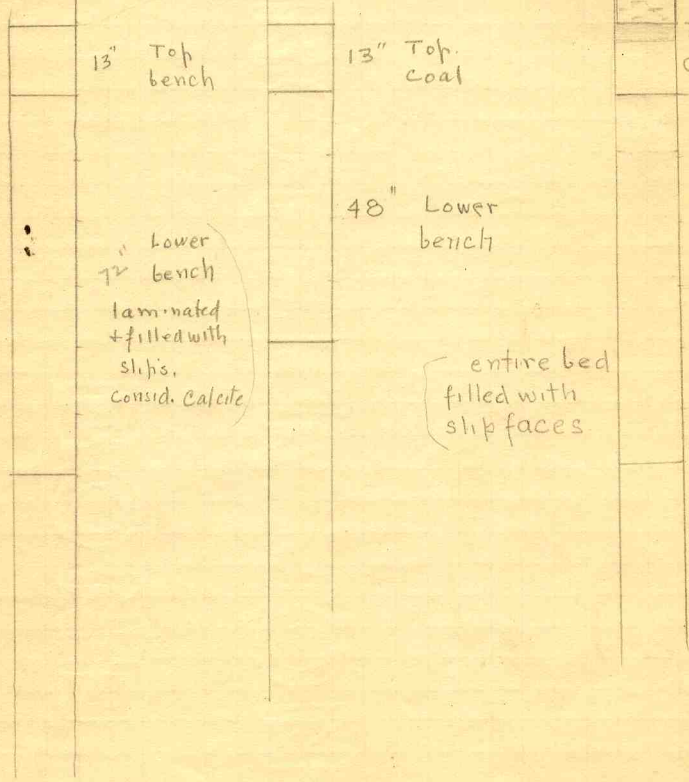 13" Top
bench
Lower
72" bench
laminated
+ filled with
slips,
Consid. Calcite
13" Top.
coal
48" Lower
bench
entire bed
filled with
slip faces